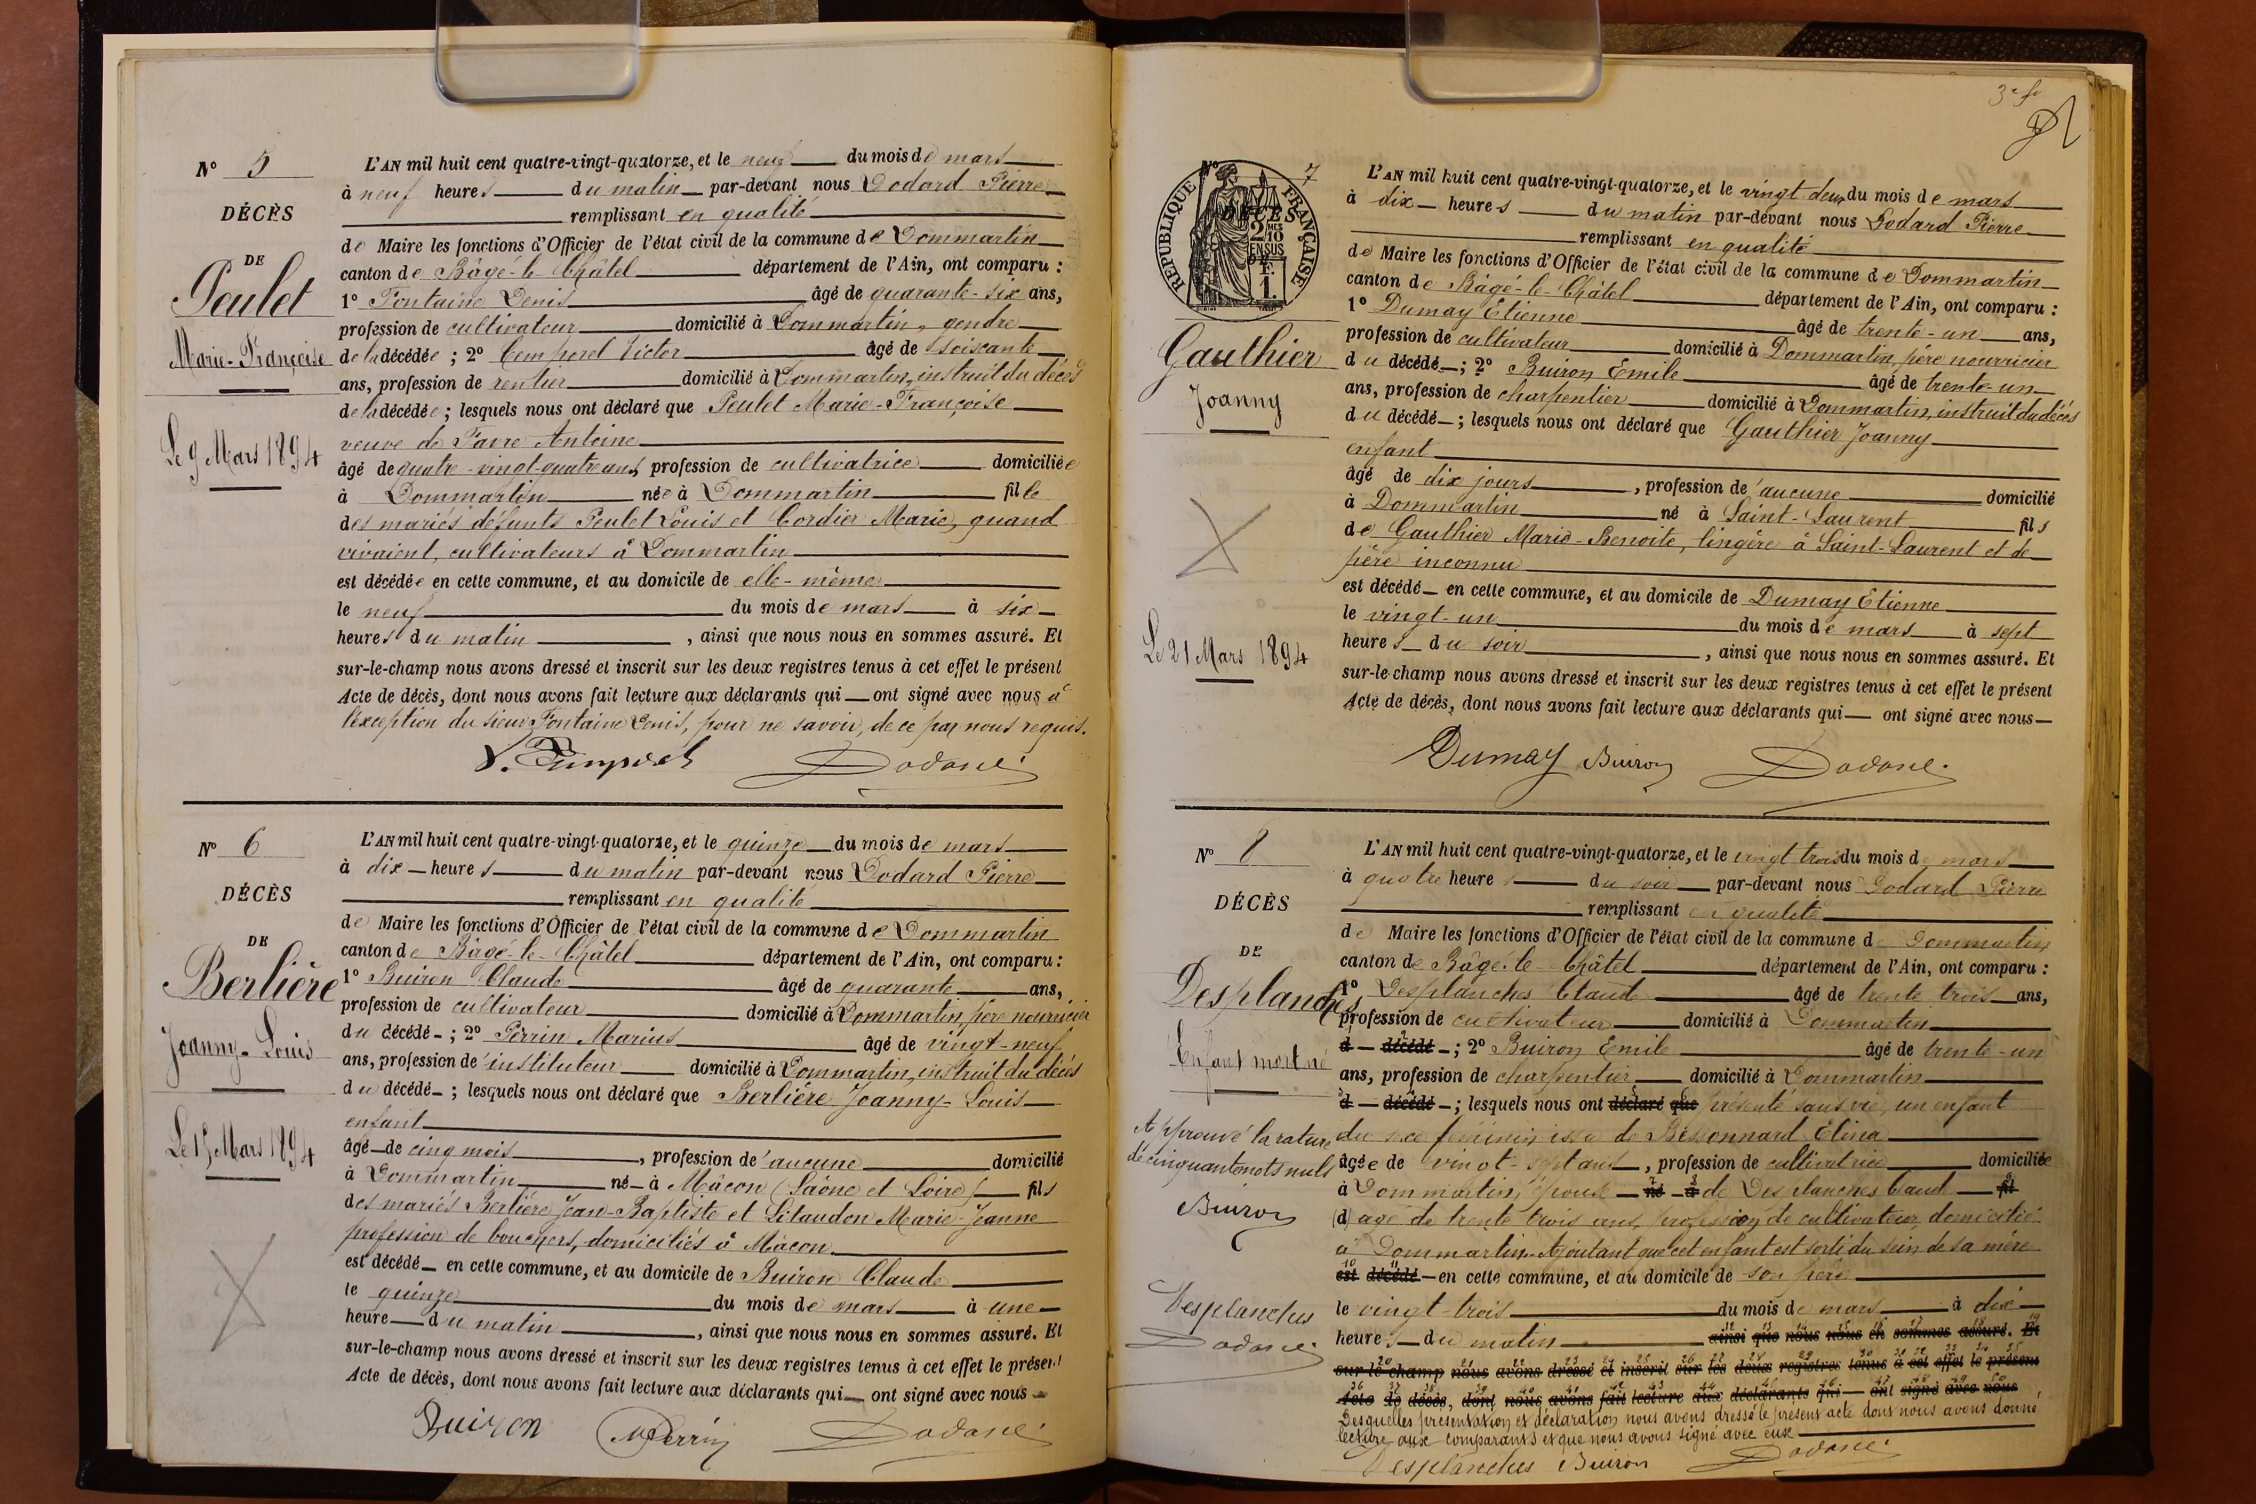 N° 5
DÉCÈS
DE
Peulet
Marie-Françoise
Le 9 Mars 1894
L'AN mil huit cent quatre-vingt-quatorze, et le neuf du mois de mars
à neuf heures du matin par-devant nous Dodard Pierre
remplissant en qualité
de Maire les fonctions d'Officier de l'état civil de la commune de Dommartin
canton de Bâgé-le-Châtel département de l'Ain, ont comparu :
1° Fontaine Denis âgé de quarante-six ans,
profession de cultivateur domicilié à Dommartin, gendre
de la décédée ; 2° Victor âgé de soixante
ans, profession de rentier domicilié à Dommartin, instruit du décès
de la décédée ; lesquels nous ont déclaré que Peulet Marie-Françoise
veuve de Favre Antoine
âgé de quatre-vingt-quatre ans, profession de cultivatrice domiciliée
à Dommartin née à Dommartin fille
des mariés défunts Peulet Louis et Cordier Marie, quand
vivaient, cultivateurs à Dommartin
est décédée en cette commune, et au domicile de elle-même
le neuf du mois de mars à six
heures du matin , ainsi que nous nous en sommes assuré. Et
sur-le-champ nous avons dressé et inscrit sur les deux registres tenus à cet effet le présent
Acte de décès, dont nous avons fait lecture aux déclarants qui ont signé avec nous à
l'exception du sieur Fontaine Denis, pour ne savoir, de ce par nous requis.
N° 6
DÉCÈS
DE
Berlière
Joanny-Louis
Le 15 Mars 1894
L'AN mil huit cent quatre-vingt-quatorze, et le quinze du mois de mars
à dix heures du matin par-devant nous Dodard Pierre
remplissant en qualité
de Maire les fonctions d'Officier de l'état civil de la commune de Dommartin
canton de Bâgé-le-Châtel département de l'Ain, ont comparu :
1° Buiron Claude âgé de quarante ans,
profession de cultivateur domicilié à Dommartin, père nourricier
du décédé ; 2° Perrin Marius âgé de vingt-neuf
ans, profession de instituteur domicilié à Dommartin, instruit du décès
du décédé ; lesquels nous ont déclaré que Berlière Joanny-Louis
enfant
âgé de cinq mois , profession de aucune domicilié
à Dommartin né à Mâcon (Saône et Loire) fils
des mariés Berlière Jean-Baptiste et Litaudon Marie-Jeanne
profession de bouchers, domiciliés à Mâcon
est décédé en cette commune, et au domicile de Buiron Claude
le quinze du mois de mars à une
heure du matin , ainsi que nous nous en sommes assuré. Et
sur-le-champ nous avons dressé et inscrit sur les deux registres tenus à cet effet le présent
Acte de décès, dont nous avons fait lecture aux déclarants qui ont signé avec nous
Buiron MPerrin
3e f
N° 7
RÉPUBLIQUE FRANÇAISE
DÉCÈS
2/10 EN SUS
DE
1 F.
Gauthier
Joanny
Le 21 Mars 1894
L'AN mil huit cent quatre-vingt-quatorze, et le vingt deux du mois de mars
à dix heures du matin par-devant nous Dodard Pierre
remplissant en qualité
de Maire les fonctions d'Officier de l'état civil de la commune de Dommartin
canton de Bâgé-le-Châtel département de l'Ain, ont comparu :
1° Dumay Etienne âgé de trente-un ans,
profession de cultivateur domicilié à Dommartin, père nourricier
du décédé ; 2° Buiron Emile âgé de trente-un
ans, profession de charpentier domicilié à Dommartin, instruit du décès
du décédé ; lesquels nous ont déclaré que Gauthier Joanny
enfant
âgé de dix jours , profession de aucune domicilié
à Dommartin né à Saint-Laurent fils
de Gauthier Marie-Benoite, lingère à Saint-Laurent et de
père inconnu
est décédé en cette commune, et au domicile de Dumay Etienne
le vingt-un du mois de mars à sept
heures du soir , ainsi que nous nous en sommes assuré. Et
sur-le-champ nous avons dressé et inscrit sur les deux registres tenus à cet effet le présent
Acte de décès, dont nous avons fait lecture aux déclarants qui ont signé avec nous
Dumay Buiron
N° 8
DÉCÈS
DE
Desplanches
Enfant mort né
Approuvé la rature
de cinquante mots nuls
Buiron
Desplanches
L'AN mil huit cent quatre-vingt-quatorze, et le vingt trois du mois de mars
à quatre heures du soir par-devant nous Dodard Pierre
remplissant en qualité
de Maire les fonctions d'Officier de l'état civil de la commune de Dommartin
canton de Bâgé-le-Châtel département de l'Ain, ont comparu :
1° Desplanches Claude âgé de trente trois ans,
profession de cultivateur domicilié à Dommartin
d décédé ; 2° Buiron Emile âgé de trente-un
ans, profession de charpentier domicilié à Dommartin
d décédé ; lesquels nous ont déclaré que présenté sans vie, un enfant
du sexe féminin issu de Bessonnard Elina
âgée de vingt-sept ans , profession de cultivatrice domiciliée
à Dommartin, épouse né à de Desplanches Claude fil
(d) âgé de trente trois ans, profession de cultivateur, domicilié
à Dommartin. Ajoutant que cet enfant est sorti du sein de sa mère
est décédé en cette commune, et au domicile de son père
le vingt-trois du mois de mars à dix
heures du matin ainsi que nous nous en sommes assuré. Et
sur-le-champ nous avons dressé et inscrit sur les deux registres tenus à cet effet le présent
Acte de décès, dont nous avons fait lecture aux déclarants qui ont signé avec nous
Desquelles présentation et déclaration nous avons dressé le présent acte dont nous avons donné
lecture aux comparants et que nous avons signé avec eux
Desplanches Buiron